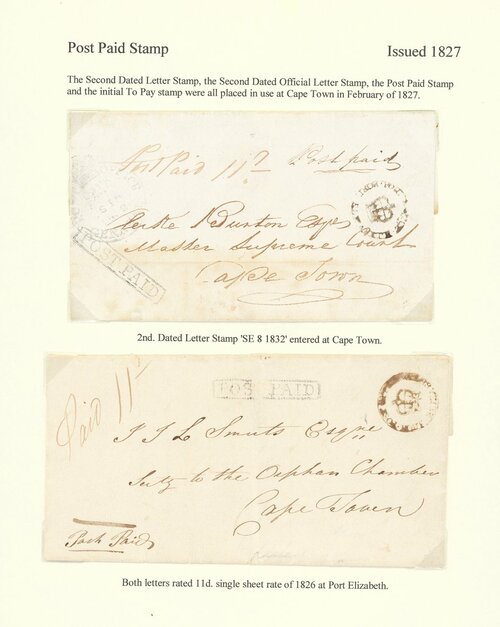 Post Paid Stamp
Issued 1827
The Second Dated Letter Stamp, the Second Dated Official Letter Stamp, the Post Paid Stamp
and the initial To Pay stamp were all placed in use at Cape Town in February of 1827.
Post Paid 11d Post paid
Clerke Burton Esqre
Master Supreme Court
Cape Town
POST PAID
2nd. Dated Letter Stamp 'SE 8 1832' entered at Cape Town.
POST PAID
Paid 11
J J L Smuts Esqre
Secty to the Orphan Chamber
Cape Town
Post Paid
Both letters rated 11d. single sheet rate of 1826 at Port Elizabeth.